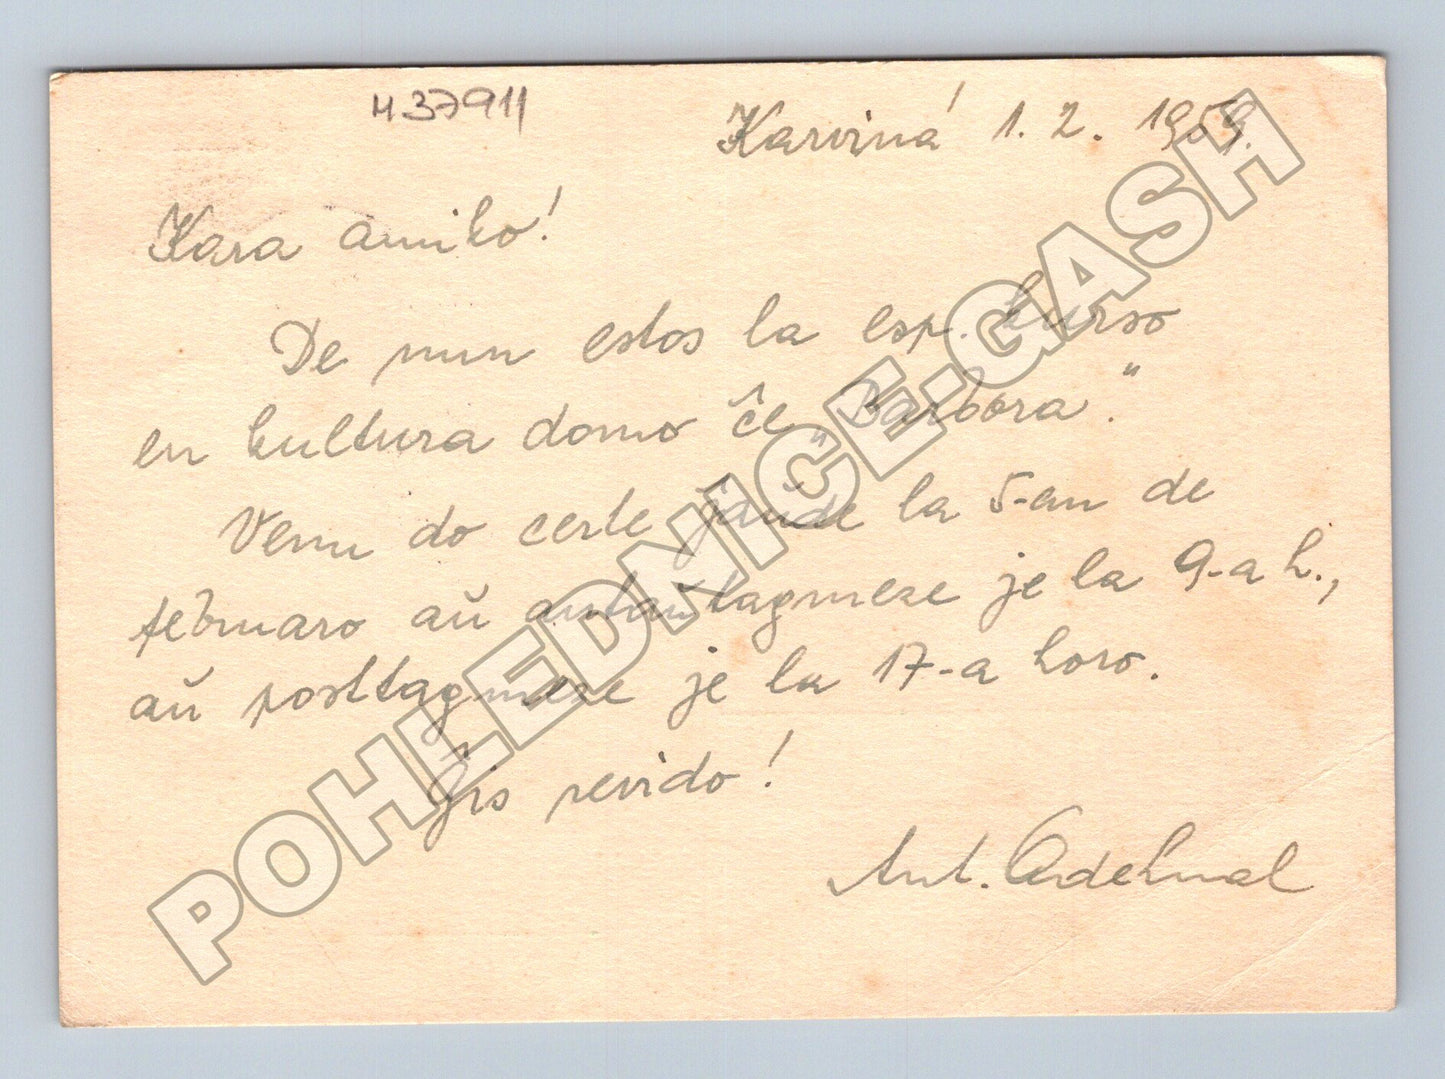 437911
Karviná 1. 2. 1959.
Kara amiko!
De nun estos la esp. kurso
en kultura domo ĉe „Barbora."
Venu do certe ĵaŭde la 5-an de
februaro aŭ antaŭtagmeze je la 9-a h.,
aŭ posttagmeze je la 17-a horo.
Ĝis revido!
Ant.
POHLEDNICE.GASH